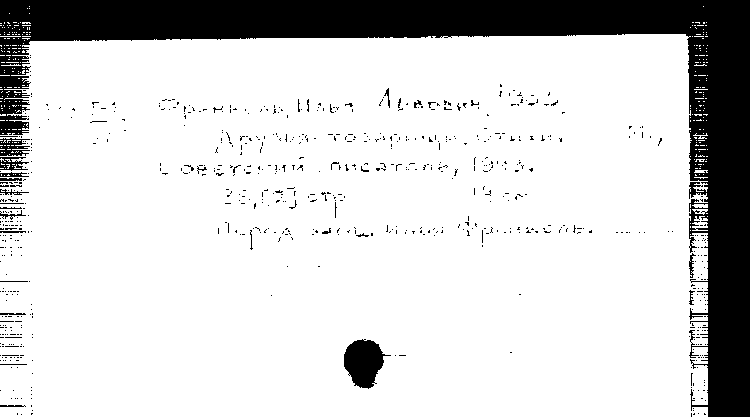 Френкель, Илья Львович, 1903.
Друзья-товарищи. Стихи. М.,
Советский писатель, 1943.
38, [2] стр 14 см
Перед загл. Илья Френкель.